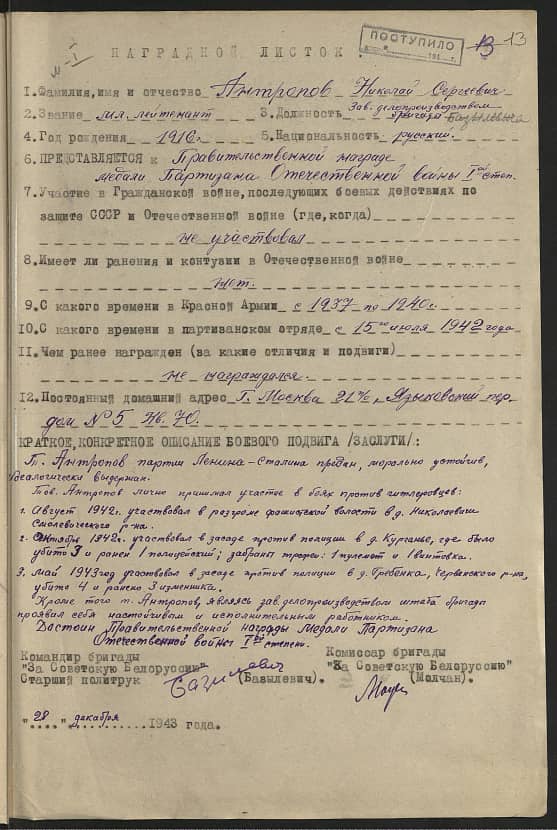 ПОСТУПИЛО
13 13
№ 1
НАГРАДНОЙ ЛИСТОК.
1. Фамилия, имя и отчество Антропов Николай Сергеевич
2. Звание мл. лейтенант 3. Должность Зав. делопроизводством бригады Базылевича
4. Год рождения 1916 г. 5. Национальность русский.
6. ПРЕДСТАВЛЯЕТСЯ к Правительственной награде
медали Партизана Отечественной войны I ой степ.
7. Участие в Гражданской войне, последующих боевых действиях по
защите СССР и Отечественной войне (где, когда)
не участвовал
8. Имеет ли ранения и контузии в Отечественной войне
нет.
9. С какого времени в Красной Армии с 1937 по 1940 г.
10. С какого времени в партизанском отряде с 15 го июля 1942 года
11. Чем ранее награжден (за какие отличия и подвиги)
Не награждался.
12. Постоянный домашний адрес Г. Москва 21, Языковский пер
дом № 5 Кв. 70.
КРАТКОЕ, КОНКРЕТНОЕ ОПИСАНИЕ БОЕВОГО ПОДВИГА /ЗАСЛУГИ/:
Т. Антропов партии Ленина-Сталина предан, морально устойчив,
Идеологически выдержан.
Тов. Антропов лично принимал участие в боях против гитлеровцев:
1. Август 1942 г. участвовал в разгроме фашистской волости в д. Николаевичи
Смолевичского р-на.
2. Октябрь 1942 г. участвовал в засаде против полиции в д. Курганье, где было
убито 3 и ранен 1 полицейский; забраны трофеи: 1 пулемет и 1 винтовка.
3. май 1943 год участвовал в засаде против полиции в д. Гребенка, Червенского р-на,
убито 4 и ранено 3 изменника.
Кроме того т. Антропов, являясь зав. делопроизводством штаба бригады
проявил себя настойчивым и исполнительным работником.
Достоин Правительственной награды Медали Партизана
Отечественной войны I ой степени.
Командир бригады Комиссар бригады
"За Советскую Белоруссию" "За Советскую Белоруссию"
Старший политрук Базылевич (Базылевич). (Молчан).
"28" декабря 1943 года.